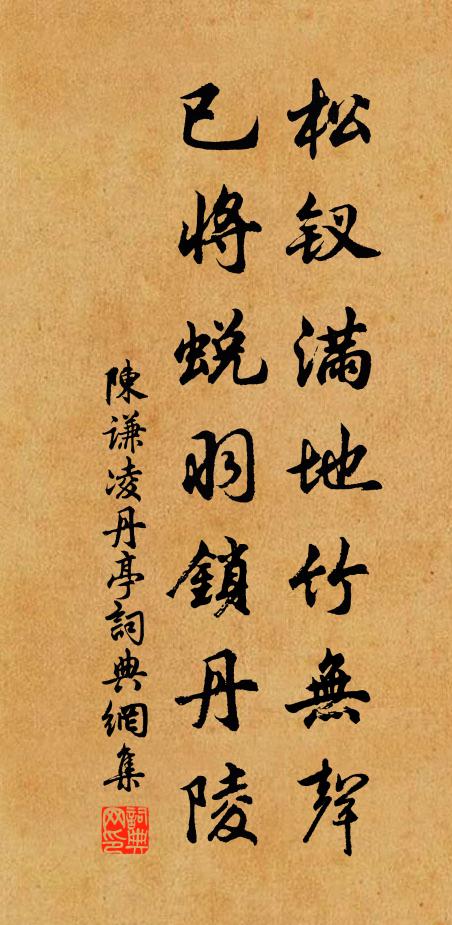 松釵滿地竹無聲
已將蛻羽鎖丹陵
陳謙凌丹亭詞典網集
詞典网印